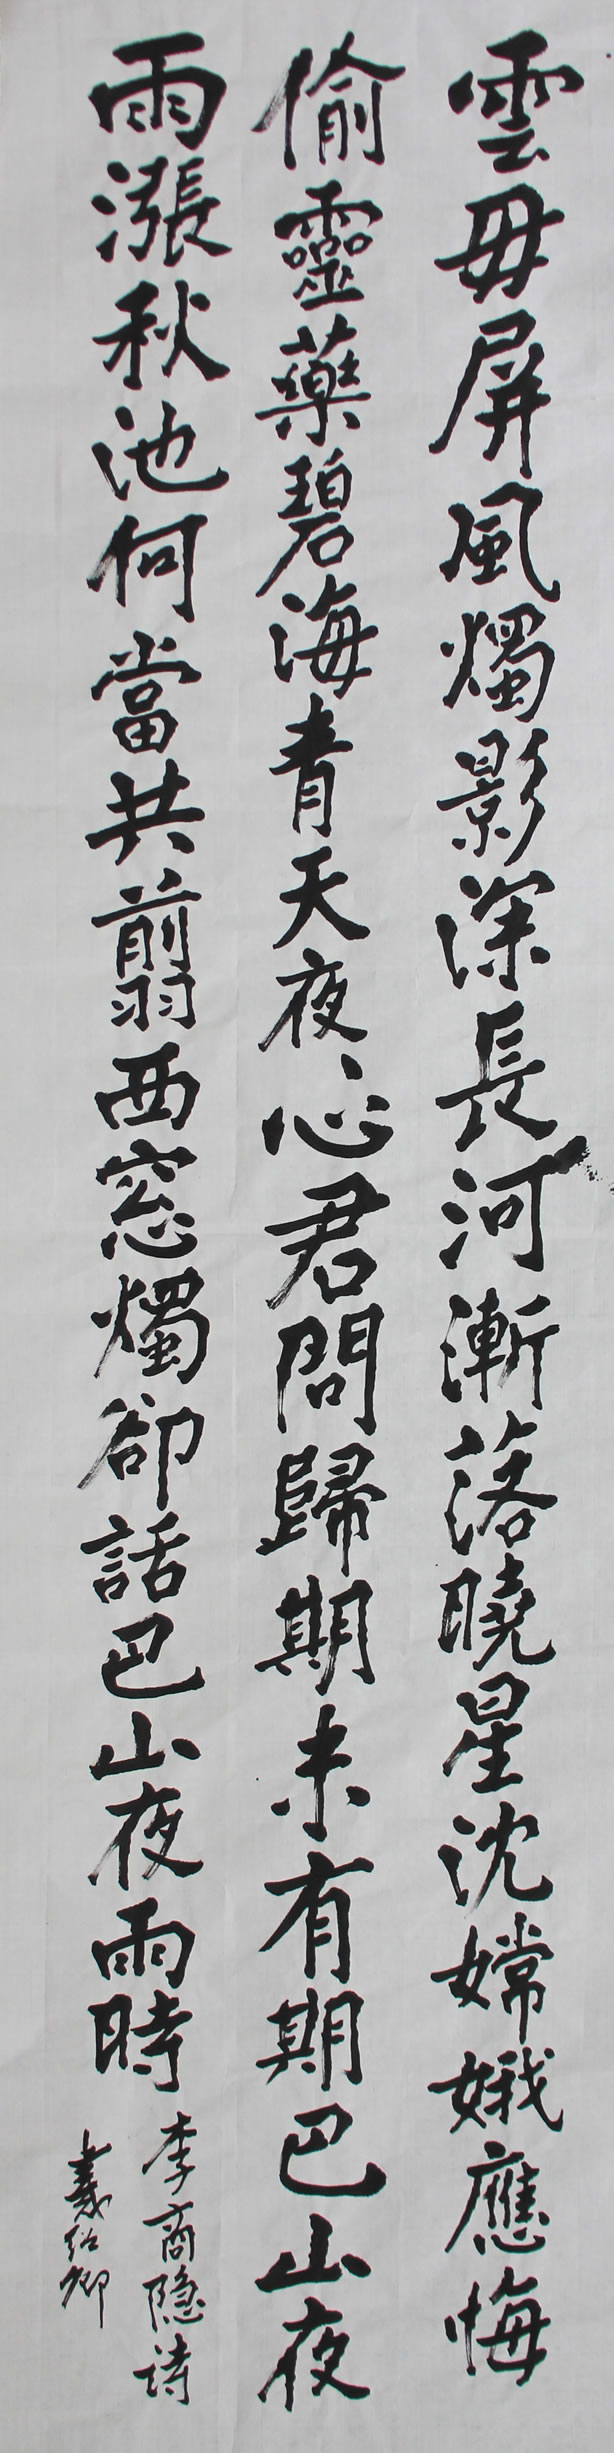 雲母屏風燭影深長河漸落曉星沈嫦娥應悔
偷靈藥碧海青天夜夜心君問歸期未有期巴山夜
雨漲秋池何當共翦西窓燭卻話巴山夜雨時
李商隐诗